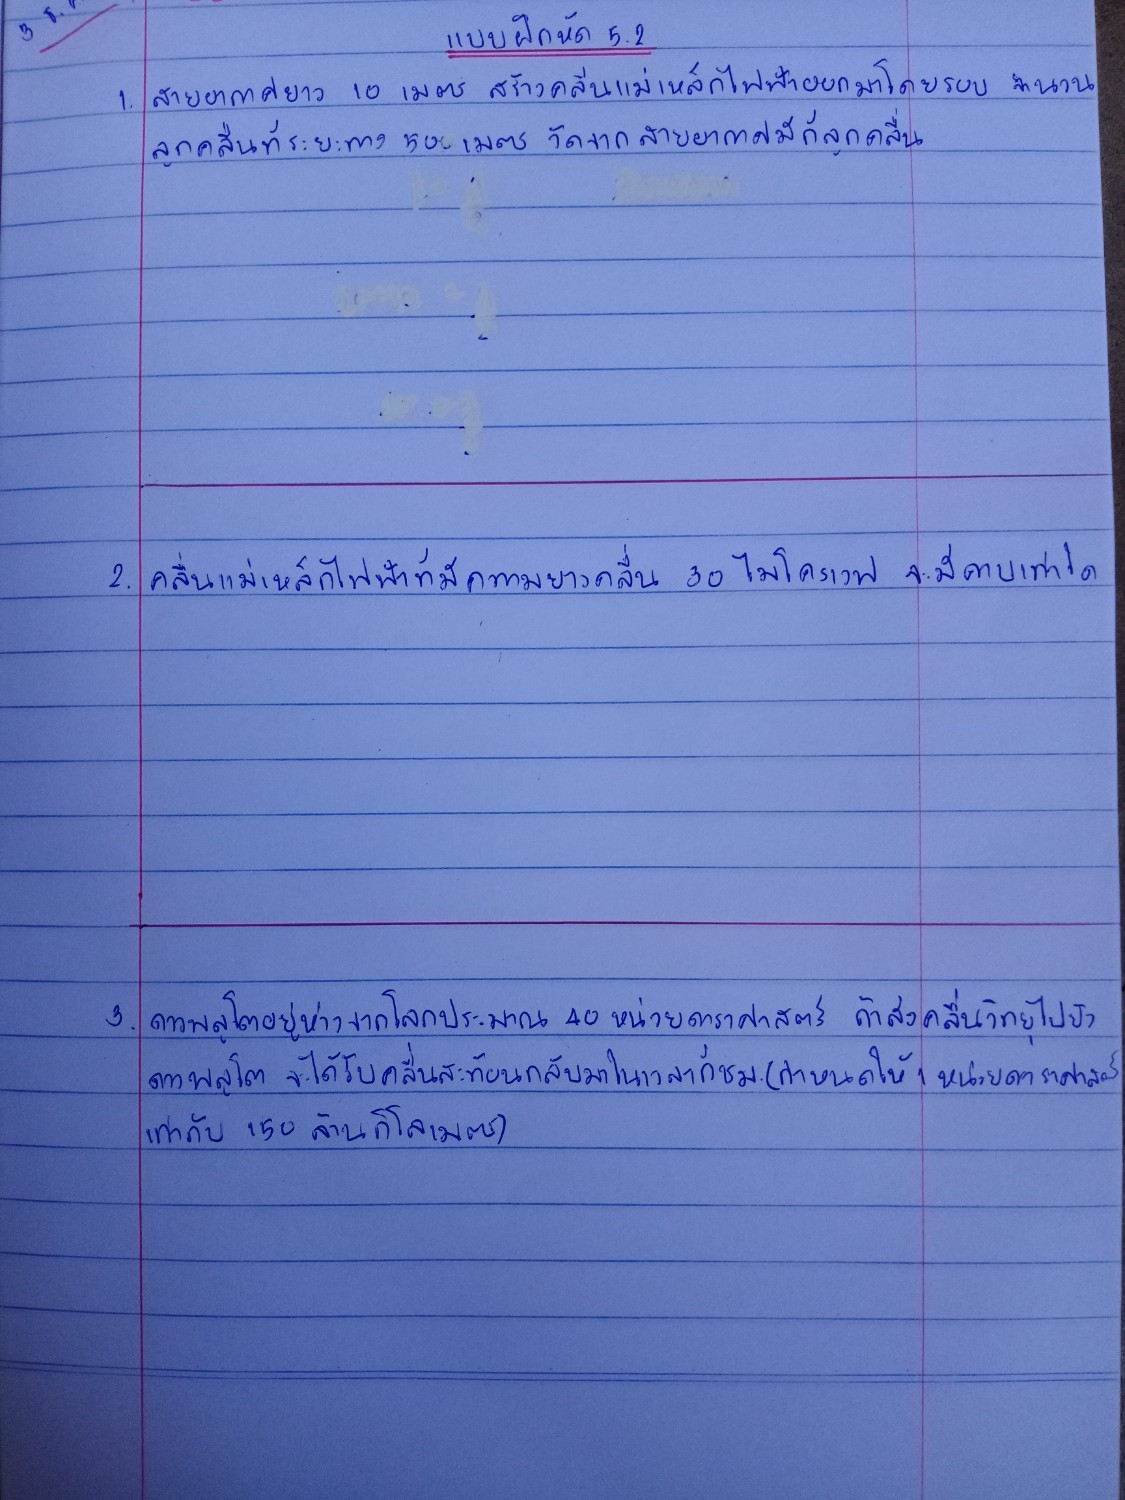 แบบฝึกหัด 5.2
1. สายอากาศยาว 10 เมตร สร้างคลื่นแม่เหล็กไฟฟ้าออกมาโดยรอบ จำนวน
ลูกคลื่นที่ระยะทาง 500 เมตร วัดจากสายอากาศมีกี่ลูกคลื่น
2. คลื่นแม่เหล็กไฟฟ้าที่มีความยาวคลื่น 30 ไมโครเวฟ จะมีคาบเท่าใด
3. ดาวพลูโตอยู่ห่างจากโลกประมาณ 40 หน่วยดาราศาสตร์ ถ้าส่งคลื่นวิทยุไปยัง
ดาวพลูโต จะได้รับคลื่นสะท้อนกลับมาในเวลากี่ชม. (กำหนดให้ 1 หน่วยดาราศาสตร์
เท่ากับ 150 ล้านกิโลเมตร)